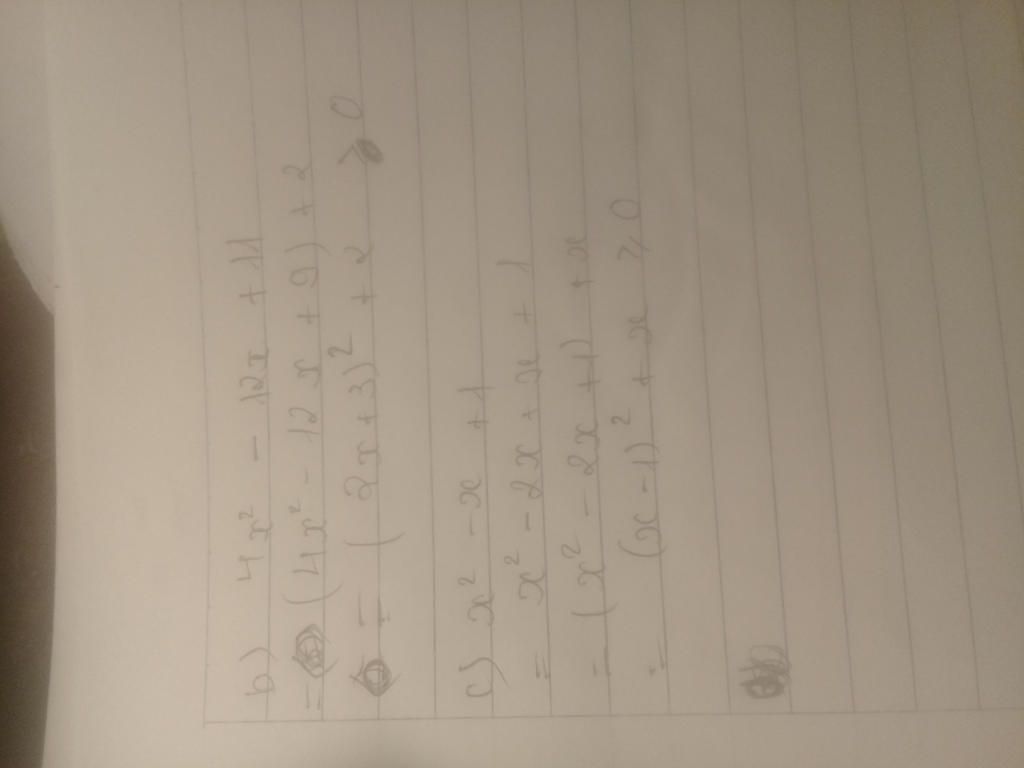 b) 4x² - 12x + 11
= (4x² - 12x + 9) + 2
= (2x+3)² + 2 > 0
c) x² - x + 1
= x² - 2x + x + 1
= (x² - 2x + 1) + x
= (x - 1)² + x ⩾ 0